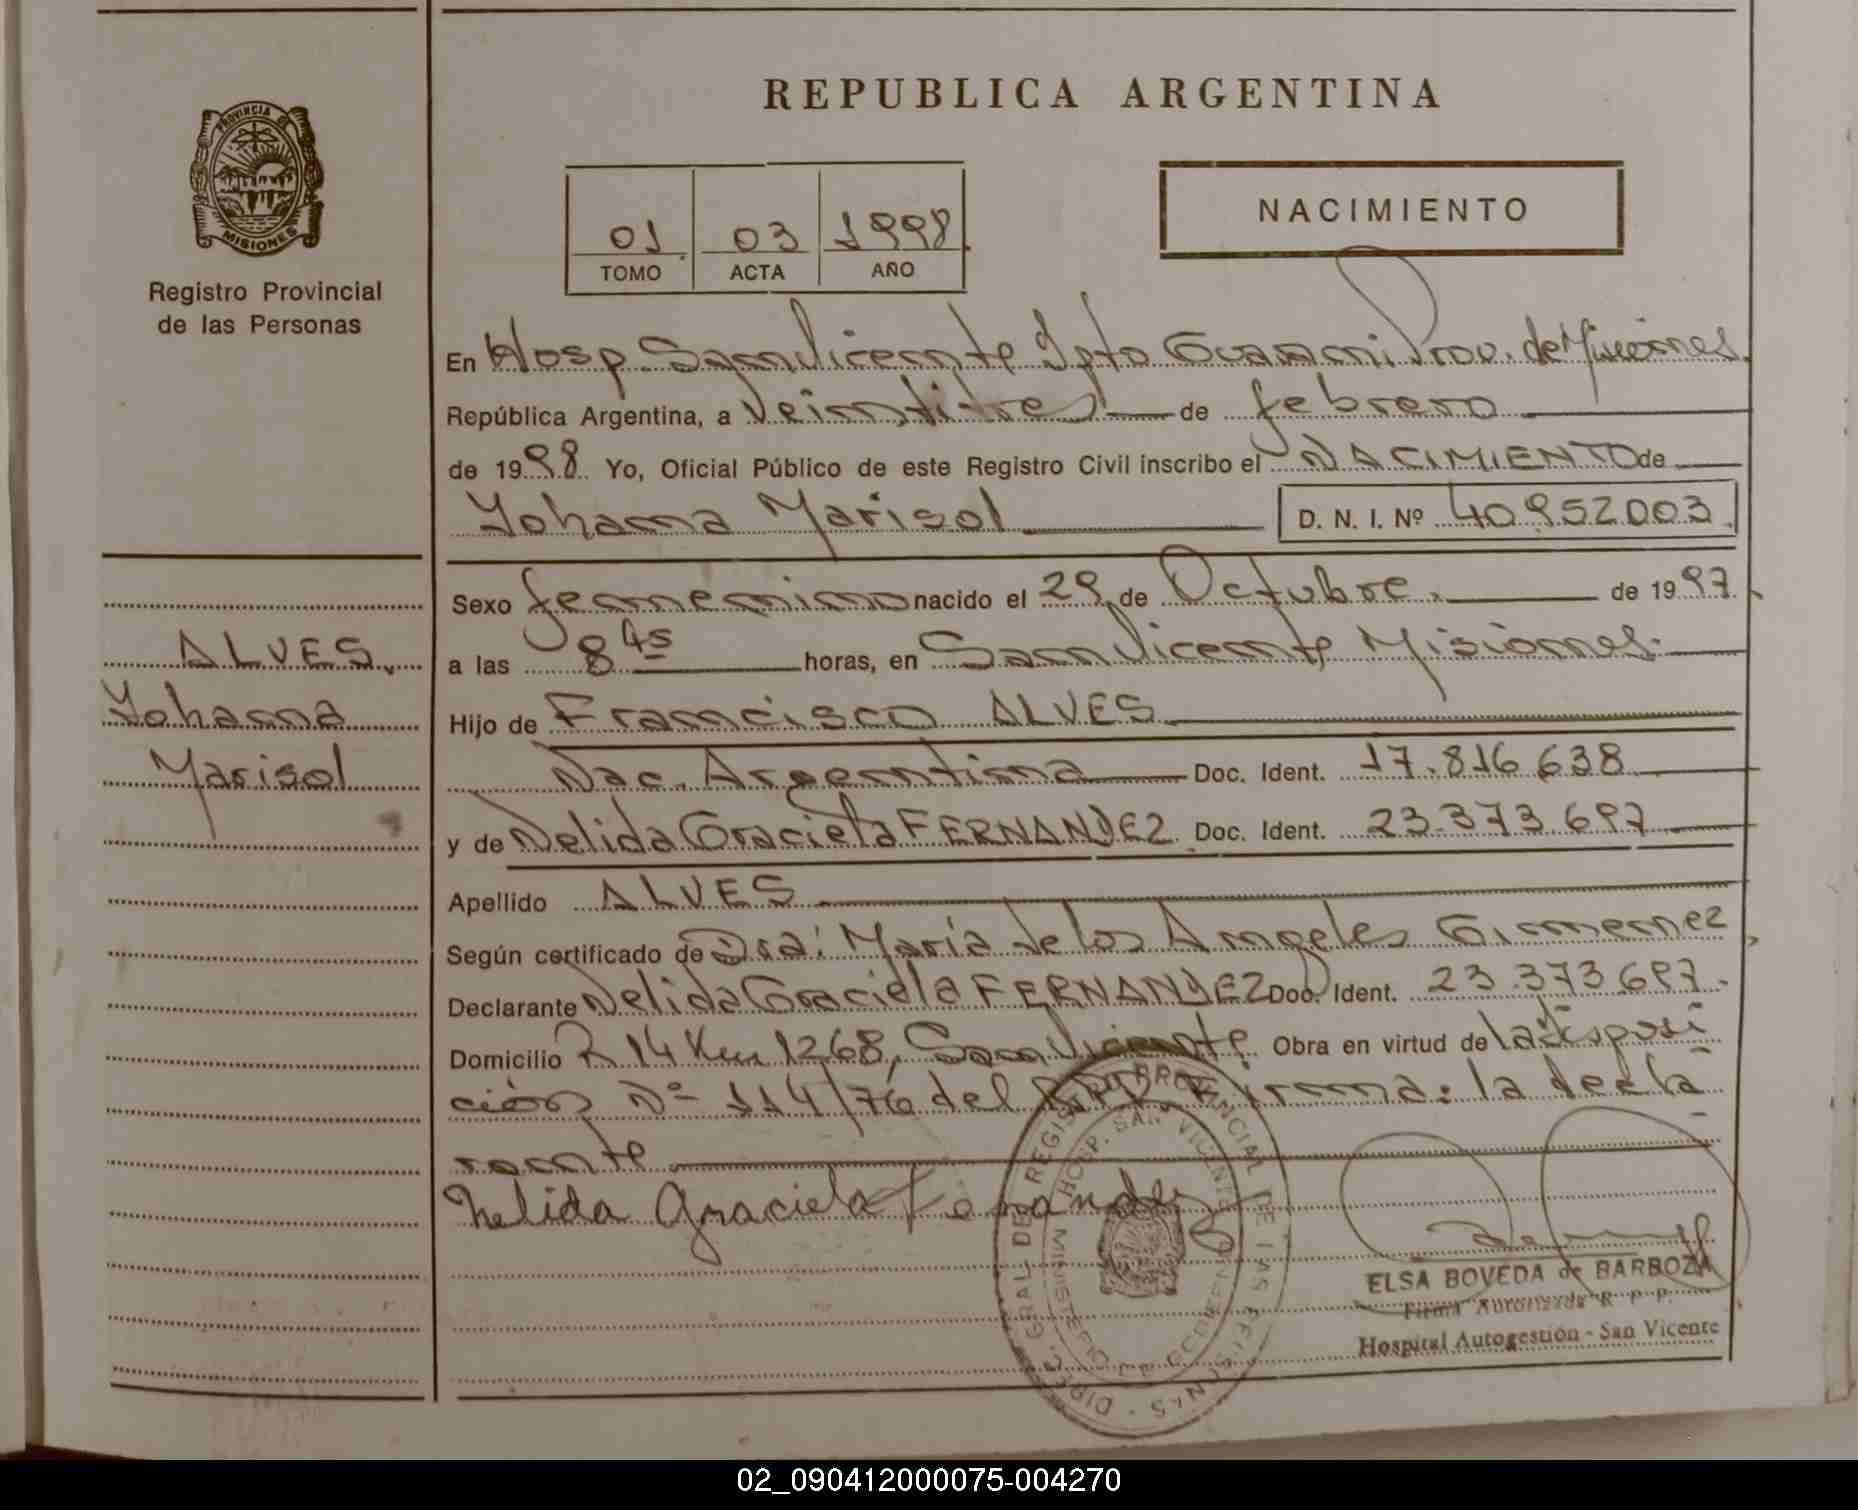 PROVINCIA DE
MISIONES
Registro Provincial
de las Personas
ALVES.
Yohana
Marisol
REPUBLICA ARGENTINA
01 03 1998
TOMO ACTA AÑO
NACIMIENTO
En Hosp. San Vicente Dpto Guarani Prov. de Misiones
República Argentina, a Veintitres de febrero
de 1998 Yo, Oficial Público de este Registro Civil inscribo el NACIMIENTO de
Yohana Marisol D. N. I. Nº 40952003
Sexo femenino nacido el 29 de Octubre. de 1997
a las 8 45 horas, en San Vicente Misiones.
Hijo de Francisco ALVES
Nac. Argentina Doc. Ident. 17.816.638
y de Nelida Graciela FERNANDEZ Doc. Ident. 23.373.697
Apellido ALVES
Según certificado de Dra: María de los Angeles Gimenez
Declarante Nelida Graciela FERNANDEZ Doc. Ident. 23.373.697.
Domicilio R 14 Km 1268, San Vicente Obra en virtud de la disposi
ción Nº 114/76 del RPP. Firma: la decla
rante
Nelida Graciela Fernandez
DIREC. GRAL. DEL REGISTRO PROVINCIAL DE LAS PERSONAS
HOSP. SAN VICENTE
MINISTERIO DE GOBIERNO
ELSA BOVEDA de BARBOZA
Firma Autorizada R. P. P.
Hospital Autogestión - San Vicente
02_090412000075-004270